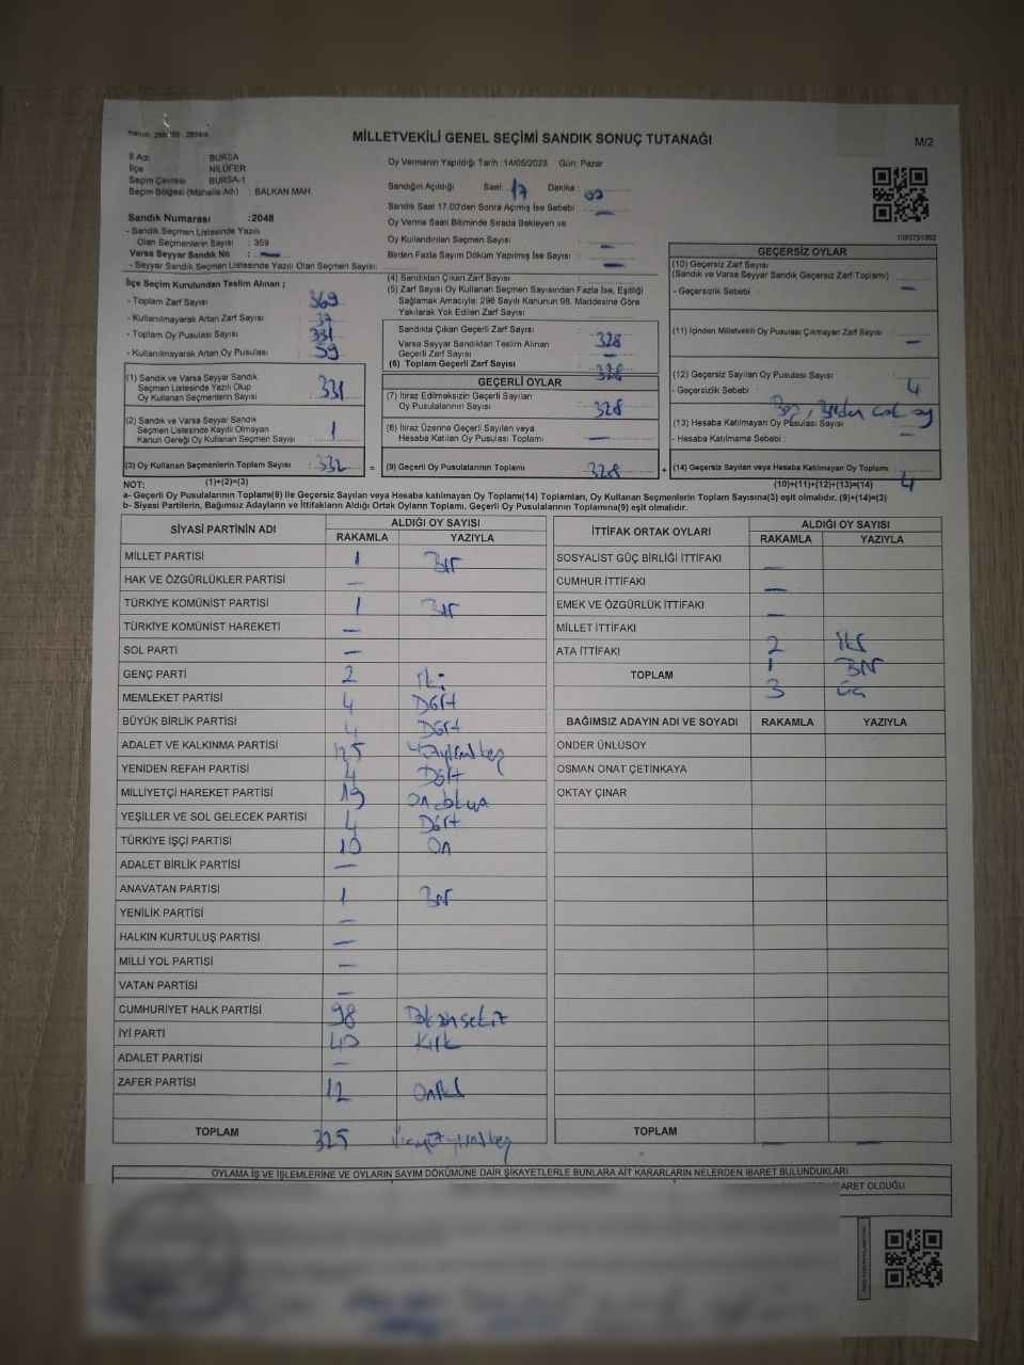 MİLLETVEKİLİ GENEL SEÇİMİ SANDIK SONUÇ TUTANAĞI
M/2
İl Adı : BURSA
İlçe : NİLÜFER
Seçim Çevresi : BURSA-1
Seçim Bölgesi (Mahalle Adı) : BALKAN MAH.
Sandık Numarası :2048
- Sandık Seçmen Listesinde Yazılı
Olan Seçmenlerin Sayısı : 359
Varsa Seyyar Sandık No : —
- Seyyar Sandık Seçmen Listesinde Yazılı Olan Seçmen Sayısı:
Oy Vermenin Yapıldığı Tarih :14/05/2023 Gün: Pazar
Sandığın Açıldığı Saat : 17 Dakika : 00
Sandık Saat 17.00'den Sonra Açılmış İse Sebebi : —
Oy Verme Saati Bitiminde Sırada Bekleyen ve
Oy Kullandırılan Seçmen Sayısı —
Birden Fazla Sayım Döküm Yapılmış İse Sayısı —
İlçe Seçim Kurulundan Teslim Alınan ;
- Toplam Zarf Sayısı 369
- Kullanılmayarak Artan Zarf Sayısı 37
- Toplam Oy Pusulası Sayısı
- Kullanılmayarak Artan Oy Pusulası 59
(1) Sandık ve Varsa Seyyar Sandık
Seçmen Listesinde Yazılı Olup
Oy Kullanan Seçmenlerin Sayısı 331
(2) Sandık ve Varsa Seyyar Sandık
Seçmen Listesinde Kayıtlı Olmayan
Kanun Gereği Oy Kullanan Seçmen Sayısı 1
(3) Oy Kullanan Seçmenlerin Toplam Sayısı 332
(1)+(2)=(3)
(4) Sandıktan Çıkan Zarf Sayısı
(5) Zarf Sayısı Oy Kullanan Seçmen Sayısından Fazla İse, Eşitliği
Sağlamak Amacıyla; 298 Sayılı Kanunun 98. Maddesine Göre
Yakılarak Yok Edilen Zarf Sayısı
Sandıkta Çıkan Geçerli Zarf Sayısı 328
Varsa Seyyar Sandıktan Teslim Alınan
Geçerli Zarf Sayısı —
(6) Toplam Geçerli Zarf Sayısı 328
GEÇERLİ OYLAR
(7) İtiraz Edilmeksizin Geçerli Sayılan
Oy Pusulalarının Sayısı 328
(8) İtiraz Üzerine Geçerli Sayılan veya
Hesaba Katılan Oy Pusulası Toplamı —
= (9) Geçerli Oy Pusulalarının Toplamı 328
GEÇERSİZ OYLAR
(10) Geçersiz Zarf Sayısı
(Sandık ve Varsa Seyyar Sandık Geçersiz Zarf Toplamı)
- Geçersizlik Sebebi : —
(11) İçinden Milletvekili Oy Pusulası Çıkmayan Zarf Sayısı —
(12) Geçersiz Sayılan Oy Pusulası Sayısı 4
- Geçersizlik Sebebi : Boş, Birden çok oy
(13) Hesaba Katılmayan Oy Pusulası Sayısı —
- Hesaba Katılmama Sebebi :
+ (14) Geçersiz Sayılan veya Hesaba Katılmayan Oy Toplamı 4
(10)+(11)+(12)+(13)=(14)
NOT:
a- Geçerli Oy Pusulalarının Toplamı(9) ile Geçersiz Sayılan veya Hesaba katılmayan Oy Toplamı(14) Toplamları, Oy Kullanan Seçmenlerin Toplam Sayısına(3) eşit olmalıdır. (9)+(14)=(3)
b- Siyasi Partilerin, Bağımsız Adayların ve İttifakların Aldığı Ortak Oyların Toplamı, Geçerli Oy Pusulalarının Toplamına(9) eşit olmalıdır.
SİYASİ PARTİNİN ADI ALDIĞI OY SAYISI
RAKAMLA YAZIYLA
MİLLET PARTİSİ 1 Bir
HAK VE ÖZGÜRLÜKLER PARTİSİ —
TÜRKİYE KOMÜNİST PARTİSİ 1 Bir
TÜRKİYE KOMÜNİST HAREKETİ —
SOL PARTİ —
GENÇ PARTİ 2 İki
MEMLEKET PARTİSİ 4 Dört
BÜYÜK BİRLİK PARTİSİ 4 Dört
ADALET VE KALKINMA PARTİSİ 125
YENİDEN REFAH PARTİSİ 4 Dört
MİLLİYETÇİ HAREKET PARTİSİ 19 Ondokuz
YEŞİLLER VE SOL GELECEK PARTİSİ 4 Dört
TÜRKİYE İŞÇİ PARTİSİ 10 On
ADALET BİRLİK PARTİSİ —
ANAVATAN PARTİSİ 1 Bir
YENİLİK PARTİSİ —
HALKIN KURTULUŞ PARTİSİ —
MİLLİ YOL PARTİSİ —
VATAN PARTİSİ —
CUMHURİYET HALK PARTİSİ 98 Doksansekiz
İYİ PARTİ 40 Kırk
ADALET PARTİSİ —
ZAFER PARTİSİ 12 Oniki
TOPLAM 325 Üçyüzyirmibeş
İTTİFAK ORTAK OYLARI ALDIĞI OY SAYISI
RAKAMLA YAZIYLA
SOSYALİST GÜÇ BİRLİĞİ İTTİFAKI —
CUMHUR İTTİFAKI —
EMEK VE ÖZGÜRLÜK İTTİFAKI —
MİLLET İTTİFAKI 2 İki
ATA İTTİFAKI 1 Bir
TOPLAM 3 Üç
BAĞIMSIZ ADAYIN ADI VE SOYADI RAKAMLA YAZIYLA
ÖNDER ÜNLÜSOY
OSMAN ONAT ÇETİNKAYA
OKTAY ÇINAR
TOPLAM — —
OYLAMA İŞ VE İŞLEMLERİNE VE OYLARIN SAYIM DÖKÜMÜNE DAİR ŞİKAYETLERLE BUNLARA AİT KARARLARIN NELERDEN İBARET BULUNDUKLARI
ARET OLDUĞU